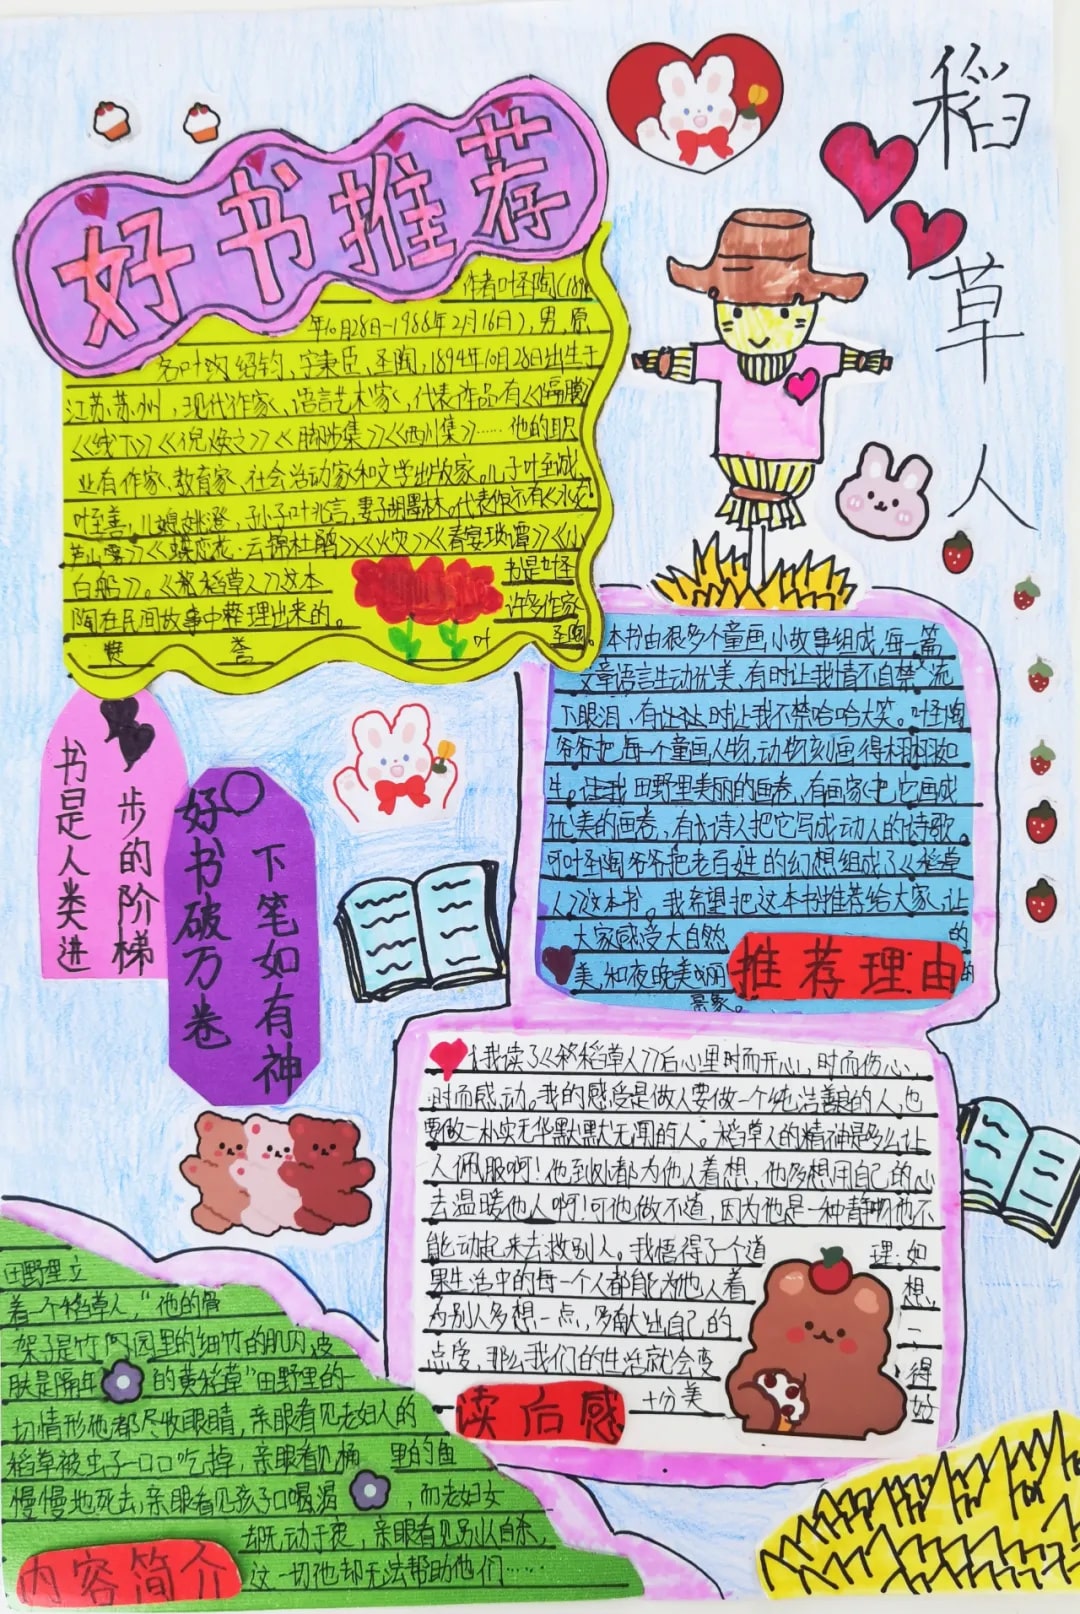 好书推荐
稻草人
作者叶圣陶(1894
年10月28日-1988年2月16日),男,原
名叶绍钧、字秉臣、圣陶,1894年10月28日出生于
江苏苏州,现代作家、语言艺术家,代表作品有《隔膜》
《线下》《倪焕之》《脚步集》《西川集》……他的职
业有作家、教育家、社会活动家和文学出版家。儿子叶至诚、
叶至善,儿媳姚澄,孙子叶兆言,妻子胡墨林。代表作有
《蝶恋花·云锦杜鹃》《火灾》《春宴琐谭》《小
白船》。《稻草人》这本书是叶圣
陶在民间故事中整理出来的。许多作家
赞誉叶圣陶。
本书由很多个童画小故事组成,每一篇
文章语言生动优美、有时让我情不自禁流
下眼泪、有时让我不禁哈哈大笑。叶圣陶
爷爷把每一个童画人物,动物刻画得栩栩如
生。让我田野里美丽的画卷、有画家把它画成
优美的画卷,有诗人把它写成动人的诗歌。
可叶圣陶爷爷把老百姓的幻想组成了《稻草
人》这本书。我希望把这本书推荐给大家,让
大家感受大自然的
美,和夜晚美丽的
景象。
推荐理由
书是人类进
步的阶梯
好书破万卷
下笔如有神
我读了《稻草人》后心里时而开心,时而伤心、
时而感动。我的感受是做人要做一个纯洁善良的人,也
要做一朴实无华默默无闻的人。稻草人的精神是多么让
人佩服啊!他到处都为他人着想,他多想用自己的心
去温暖他人啊!可他做不道,因为他是一种静物他不
能动起来去救别人。我悟得了一个道理:如
果生活中的每一个人都能为他人着想,
为别人多想一点,多献出自己的一
点爱,那么我们的生活就会变得
十分美好
读后感
田野里立
着一个稻草人,“他的骨
架子是竹园里的细竹的肌肉、皮
肤是隔年的黄稻草”田野里的一
切情形他都尽收眼睛,亲眼看见老妇人的
稻草被虫子一口口吃掉,亲眼看见桶里的鱼
慢慢地死去,亲眼看见孩子口喝渴,而老妇女
却无动于衷,亲眼看见别人自杀,
这一切他却无法帮助他们……
内容简介